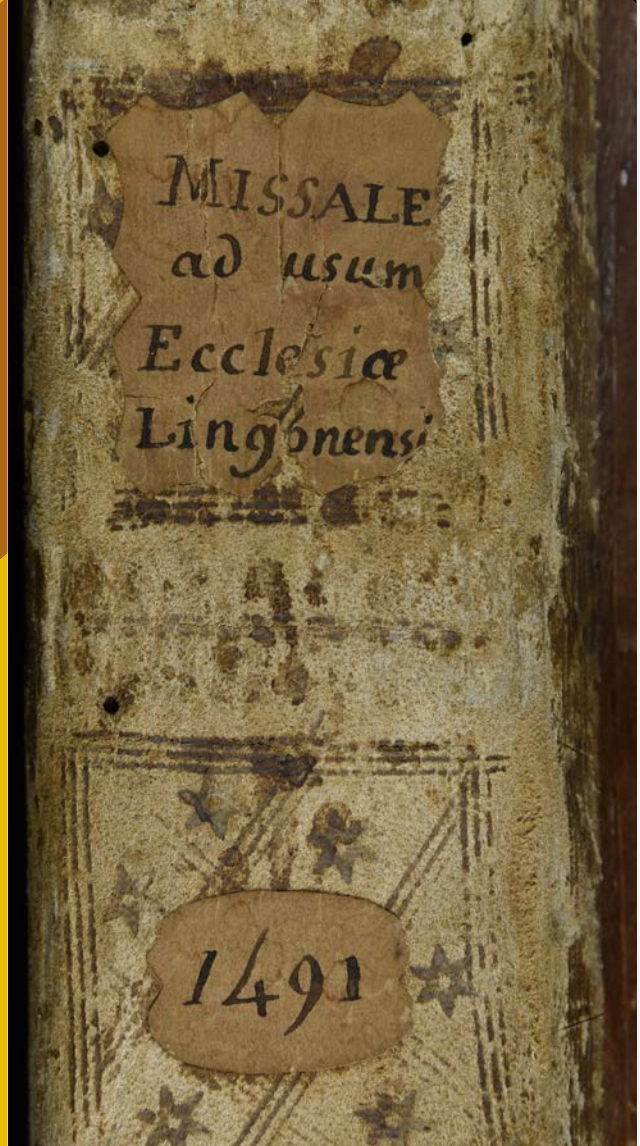 MISSALE
ad usum
Ecclesiæ
Lingonensi
1491